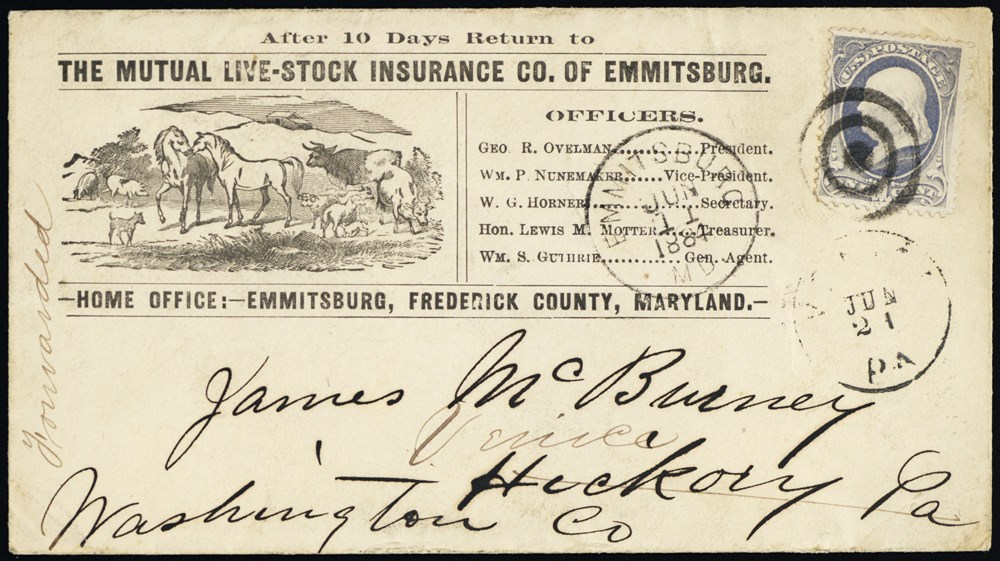 After 10 Days Return to
THE MUTUAL LIVE-STOCK INSURANCE CO. OF EMMITSBURG.
OFFICERS.
GEO. R. OVELMAN..........President.
WM. P. NUNEMAKER......Vice-President.
W. G. HORNER..............Secretary.
HON. LEWIS M. MOTTER....Treasurer.
WM. S. GUTHRIE............Gen. Agent.
—HOME OFFICE:—EMMITSBURG, FREDERICK COUNTY, MARYLAND.—
U.S. POSTAGE
EMMITSBURG
JUN
1881
MD
JUN
21
PA
Forwarded
James McBurney
Venice
Hickory Pa
Washington Co